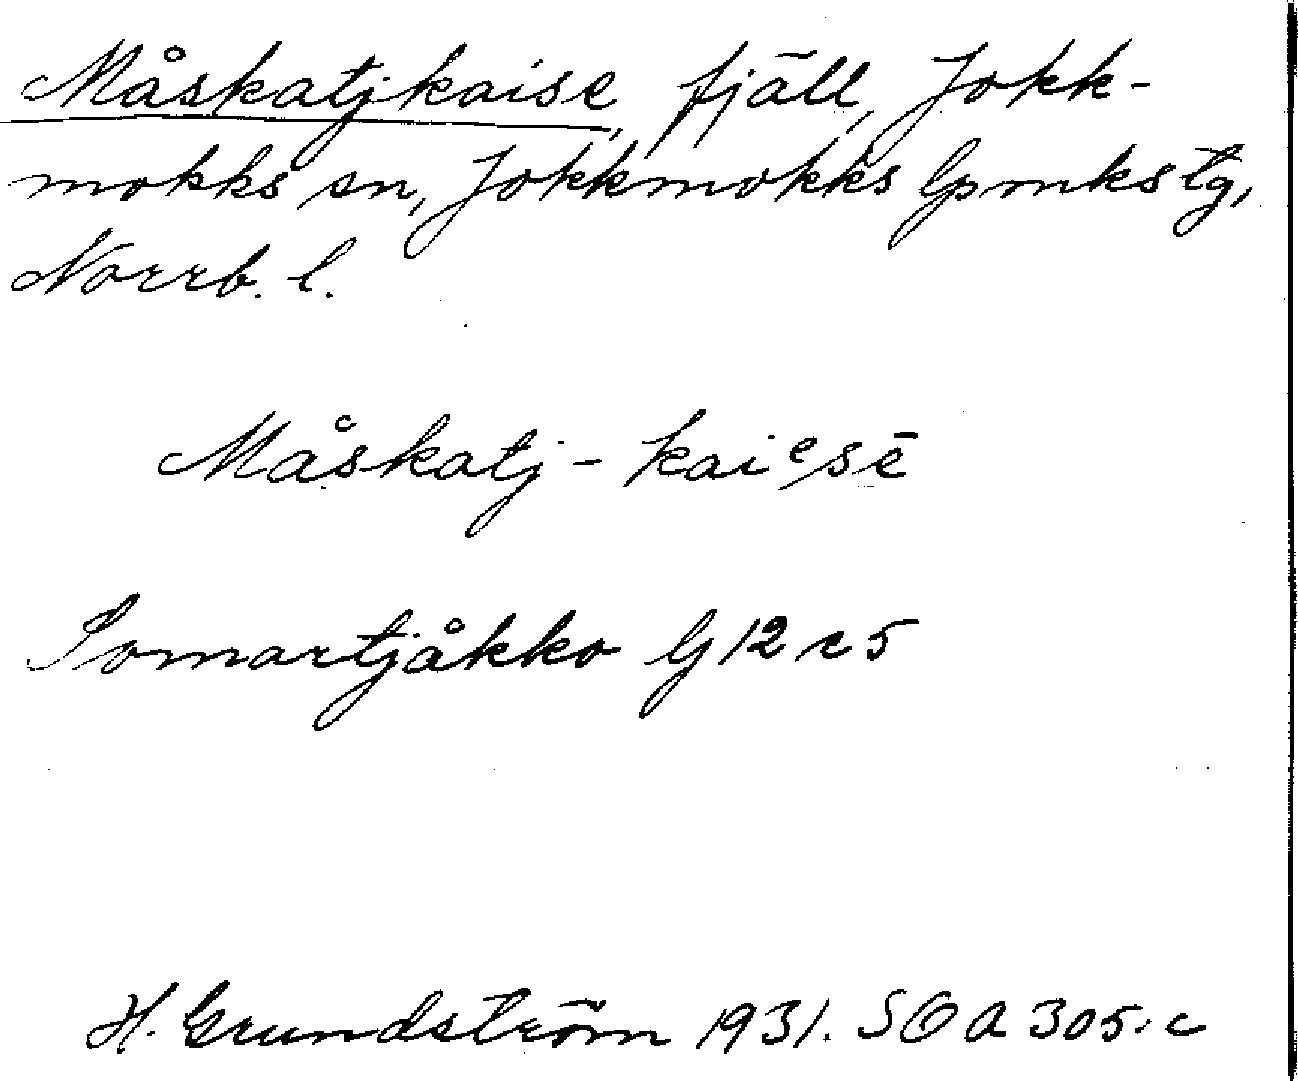 Måskatjkaise, fjäll, Jokk-
mokks sn, Jokkmokks lpmkstg,
Norrb. l.
Måskatj-kaiᵉsē
Somartjåkko G 12 c 5
H. Grundström 1931. SOA 305:c